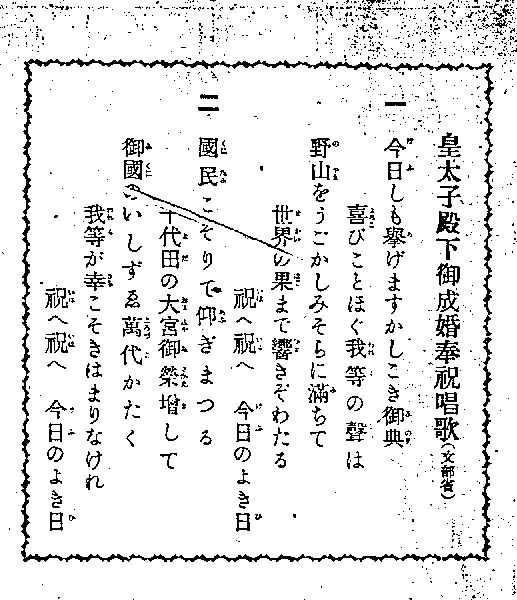 皇太子殿下御成婚奉祝唱歌（文部省）
一
今日しも擧げますかしこき御典
喜びことほぐ我等の聲は
野山をうごかしみそらに滿ちて
世界の果まで響きぞわたる
祝へ祝へ 今日のよき日
二
國民こぞりて仰ぎまつる
千代田の大宮御榮增して
御國のいしずゑ萬代かたく
我等が幸こそきはまりなけれ
祝へ祝へ 今日のよき日